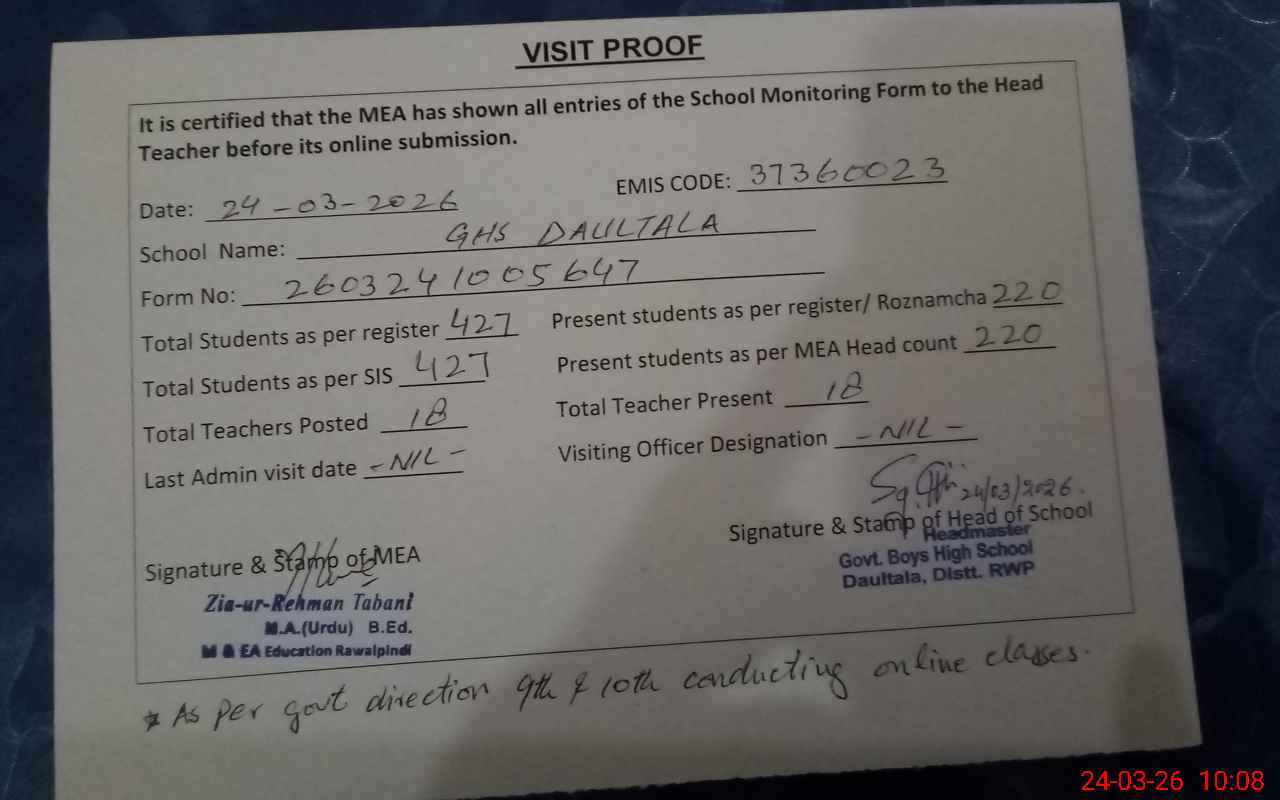 VISIT PROOF
It is certified that the MEA has shown all entries of the School Monitoring Form to the Head
Teacher before its online submission.
Date: 24-03-2026 EMIS CODE: 37360023
School Name: GHS DAULTALA
Form No: 2603241005647
Total Students as per register 427 Present students as per register/ Roznamcha 220
Total Students as per SIS 427 Present students as per MEA Head count 220
Total Teachers Posted 18 Total Teacher Present 18
Last Admin visit date -NIL- Visiting Officer Designation -NIL-
24/03/2026.
Signature & Stamp of MEA Signature & Stamp of Head of School
Headmaster
Govt. Boys High School
Daultala, Distt. RWP
Zia-ur-Rehman Tabani
M.A.(Urdu) B.Ed.
M & EA Education Rawalpindi
* As per govt direction 9th & 10th conducting online classes.
24-03-26 10:08